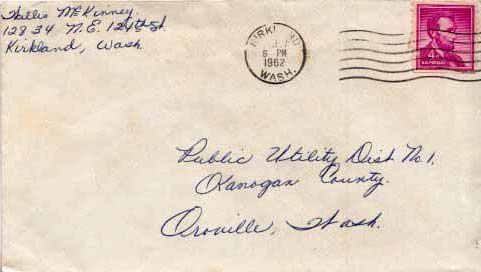 Hallie McKinney.
12834 N.E. 124th St.
Kirkland, Wash
KIRKLAND
6 PM
1962
WASH.
4¢
U.S. POSTAGE
Public Utility Dist No 1.
Okanogan County.
Oroville, Wash.